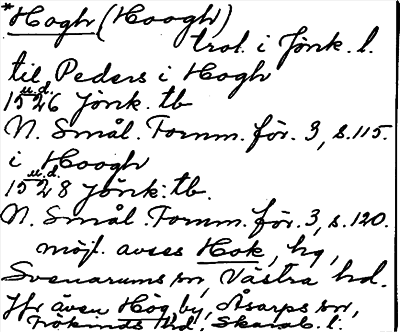 *Hogh (Hoogh)
trol. i Jönk. l.
til Peders i Hogh
u.d.
1526 Jönk. tb
N. Smål. Fornm. för. 3, s. 115.
i Hoogh
u.d.
1528 Jönk. tb.
N. Smål. Fornm. för. 3, s. 120.
möjl. avses Hok, hg,
Svenarums sn, Västra hd.
Jfr även Hög by, Åsarps sn,
Frökinds hd, Skarab. l.